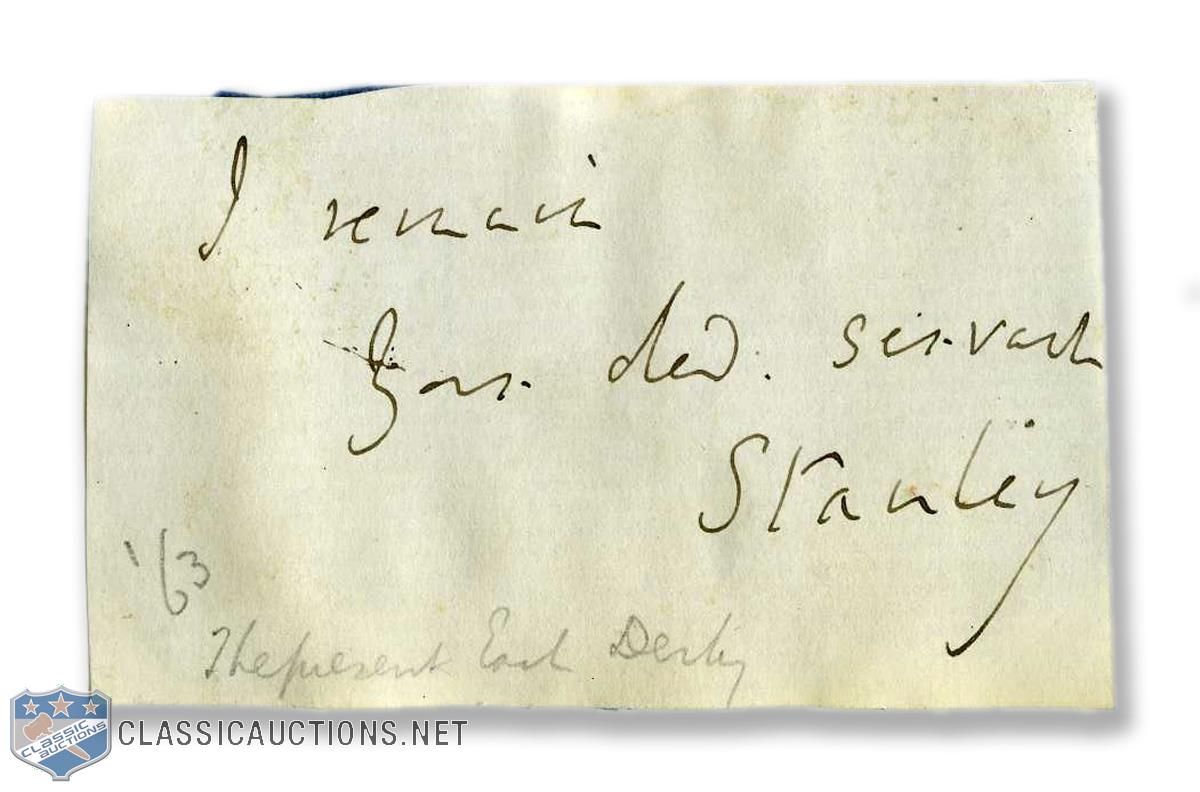 I remain
Your obed. servant
Stanley
'63
The present Earl Derby
CLASSIC
AUCTIONS
CLASSICAUCTIONS.NET